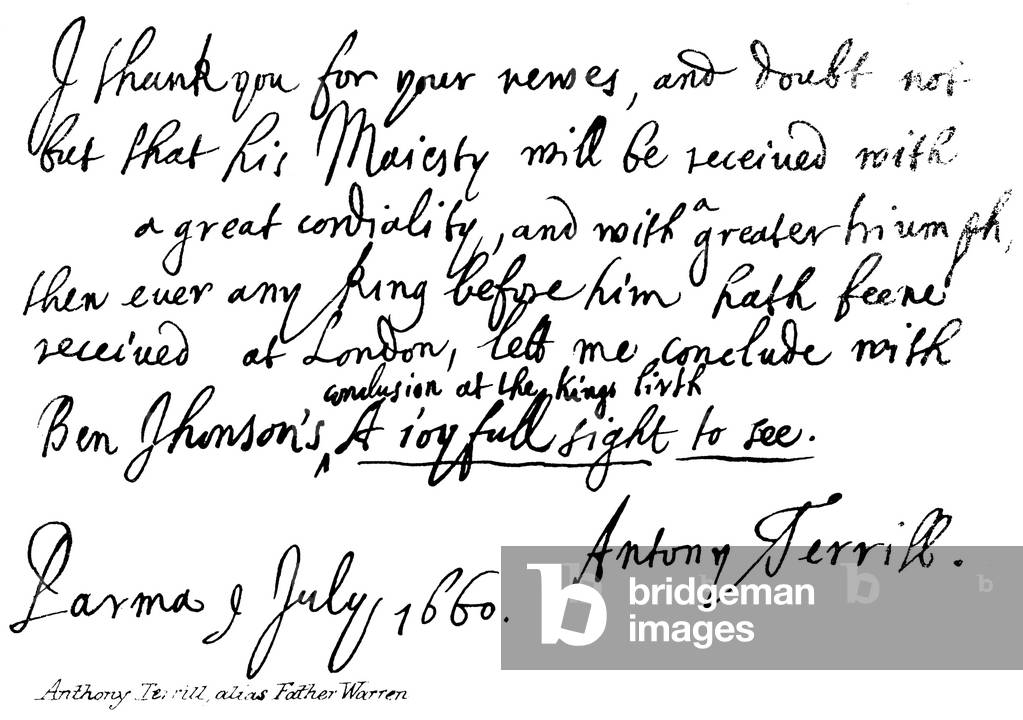 I thank you for your newes, and doubt not
but that his Maiesty will be receiued with
a great cordiality, and with a greater triumph,
then euer any King before him hath beene
receiued at London, lett me conclude with
conclusion at the Kings birth
Ben Jhonson's ^ A ioyfull sight to see.
Antony Terrill.
Parma 9 July 1660.
bridgeman
images
b
b
b
b
Anthony Terrill, alias Father Warren